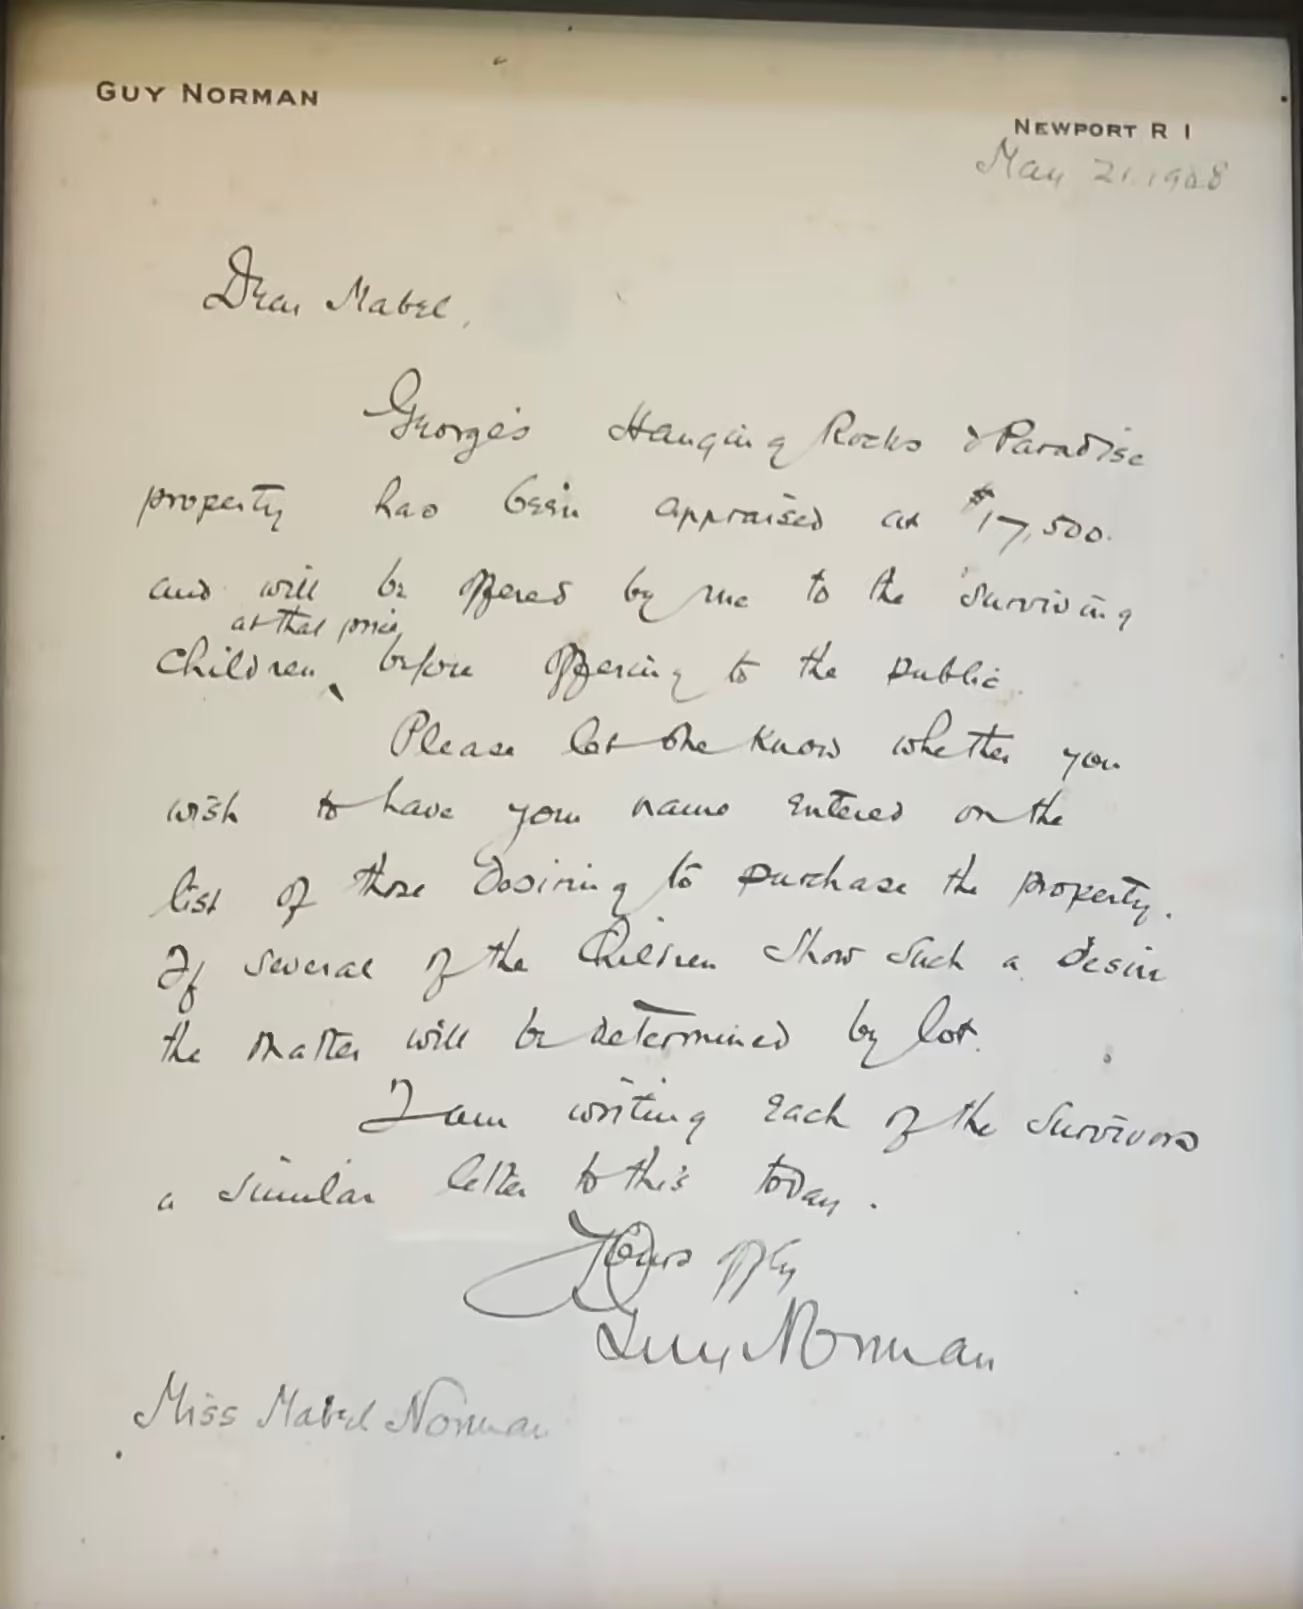 GUY NORMAN
NEWPORT R I
May 21. 1908
Dear Mabel,
George's Hanging Rocks & Paradise
property has been appraised at $17,500.
and will be offered by me to the surviving
at that price
children, before offering to the public.
Please let me know whether you
wish to have your name entered on the
list of those desiring to purchase the property.
If several of the children show such a desire
the matter will be determined by lot.
I am writing each of the survivors
a similar letter to this today.
Yours
Guy Norman
Miss Mabel Norman